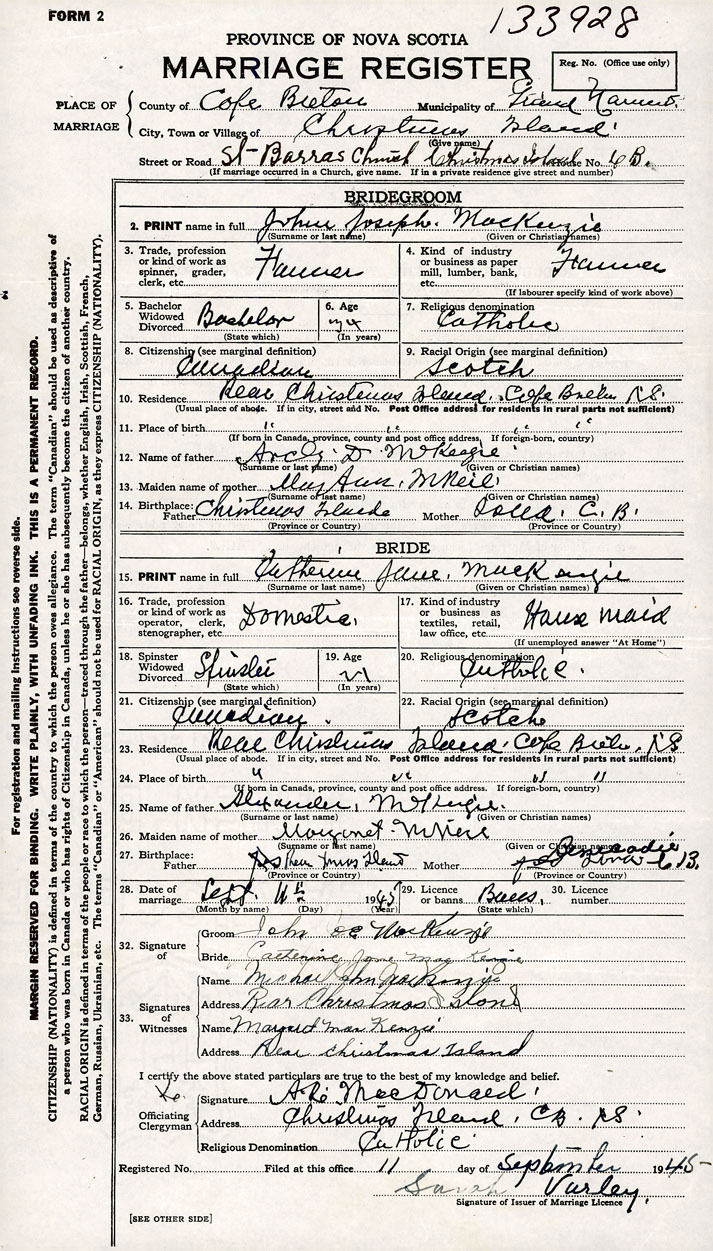 FORM 2
133928
PROVINCE OF NOVA SCOTIA
MARRIAGE REGISTER
Reg. No. (Office use only)
PLACE OF MARRIAGE
County of Cape Breton Municipality of Grand Narrows.
City, Town or Village of Christmas Island.
(Give name)
Street or Road St-Barras Church Christmas Island House No. CB.
(If marriage occurred in a Church, give name. If in a private residence give street and number)
BRIDEGROOM
2. PRINT name in full John Joseph. MacKenzie
(Surname or last name) (Given or Christian names)
3. Trade, profession or kind of work as spinner, grader, clerk, etc. Farmer
4. Kind of industry or business as paper mill, lumber, bank, etc. Farmer
(If labourer specify kind of work above)
5. Bachelor Widowed Divorced Bachelor
(State which)
6. Age
(In years)
7. Religious denomination Catholic
8. Citizenship (see marginal definition) Canadian
9. Racial Origin (see marginal definition) Scotch
10. Residence Rear Christmas Island, Cape Breton N.S.
(Usual place of abode. If in city, street and No. Post Office address for residents in rural parts not sufficient)
11. Place of birth " " " "
(If born in Canada, province, county and post office address. If foreign-born, country)
12. Name of father D. McKenzie
(Surname or last name) (Given or Christian names)
13. Maiden name of mother Mary Ann. McNeil
(Surname or last name) (Given or Christian names)
14. Birthplace: Father Christmas Island Mother Iona. C. B.
(Province or Country) (Province or Country)
BRIDE
15. PRINT name in full Catherine Jane. MacKenzie
(Surname or last name) (Given or Christian names)
16. Trade, profession or kind of work as operator, clerk, stenographer, etc. Domestic
17. Kind of industry or business as textiles, retail, law office, etc. House maid
(If unemployed answer "At Home")
18. Spinster Widowed Divorced Spinster
(State which)
19. Age 21
(In years)
20. Religious denomination Catholic.
21. Citizenship (see marginal definition) Canadian.
22. Racial Origin (see marginal definition) Scotch
23. Residence Rear Christmas Island, Cape Breton, N.S
(Usual place of abode. If in city, street and No. Post Office address for residents in rural parts not sufficient)
24. Place of birth " " " "
(If born in Canada, province, county and post office address. If foreign-born, country)
25. Name of father Alexander, McKenzie.
(Surname or last name) (Given or Christian names)
26. Maiden name of mother Margaret McNeil
(Surname or last name) (Given or Christian names)
27. Birthplace: Father Island Mother C.B.
(Province or Country) (Province or Country)
28. Date of marriage Sept. 11th 1945
(Month by name) (Day) (Year)
29. Licence or banns Banns.
(State which)
30. Licence number
32. Signature of
Groom John Joe MacKenzie
Bride Catherine Jane MacKenzie
33. Signatures of Witnesses
Name Michael John MacKenzie
Address Rear Christmas Island
Name Margaret MacKenzie
Address Rear Christmas Island
I certify the above stated particulars are true to the best of my knowledge and belief.
Officiating Clergyman
Signature MacDonald.
Address Christmas Island, C.B. N.S.
Religious Denomination Catholic
Registered No. Filed at this office 11 day of September 1945
Sarah Varley.
Signature of Issuer of Marriage Licence
[SEE OTHER SIDE]
For registration and mailing instructions see reverse side.
MARGIN RESERVED FOR BINDING. WRITE PLAINLY, WITH UNFADING INK. THIS IS A PERMANENT RECORD.
CITIZENSHIP (NATIONALITY) is defined in terms of the country to which the person owes allegiance. The term "Canadian" should be used as descriptive of
a person who was born in Canada or who has rights of Citizenship in Canada, unless he or she has subsequently become the citizen of another country.
RACIAL ORIGIN is defined in terms of the people or race to which the person—traced through the father—belongs, whether English, Irish, Scottish, French,
German, Russian, Ukrainian, etc. The terms "Canadian" or "American" should not be used for RACIAL ORIGIN, as they express CITIZENSHIP (NATIONALITY).